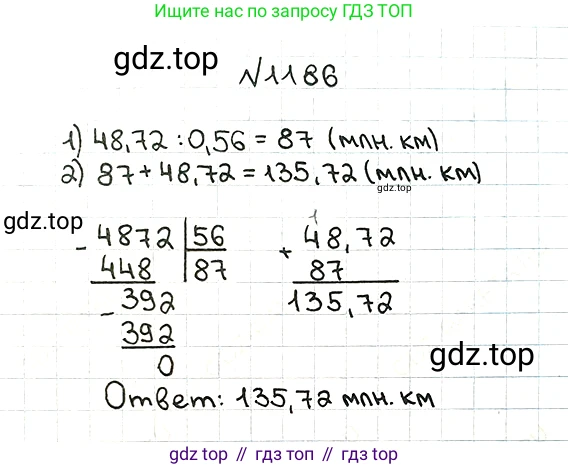 Ищите нас по запросу ГДЗ ТОП
gdz.top
№1186
1) 48,72 : 0,56 = 87 (млн. км)
2) 87 + 48,72 = 135,72 (млн. км)
gdz.top
gdz.top
- 4872 | 56
448 | 87
- 392
392
0
1
+ 48,72
87
135,72
gdz.top
Ответ: 135,72 млн. км
gdz.top // гдз топ // гдз.топ